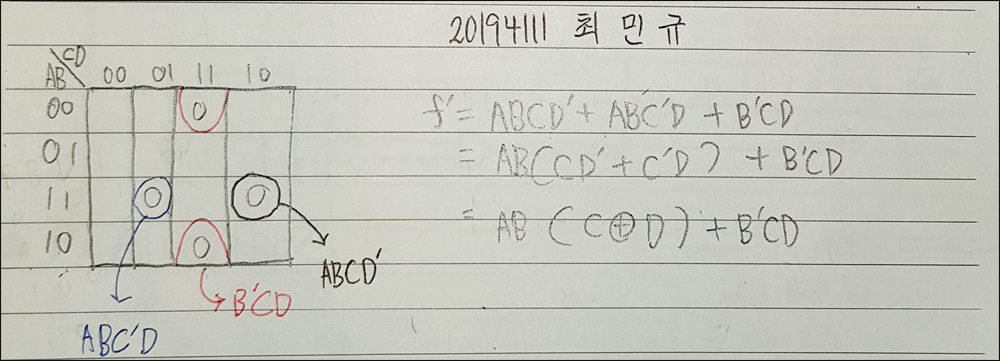 20194111 최민규
CD
AB 00 01 11 10
00 0
01
11 0 0
10 0
ABCD'
B'CD
ABC'D
f' = ABCD' + ABC'D + B'CD
= AB(CD' + C'D) + B'CD
= AB (C⊕D) + B'CD